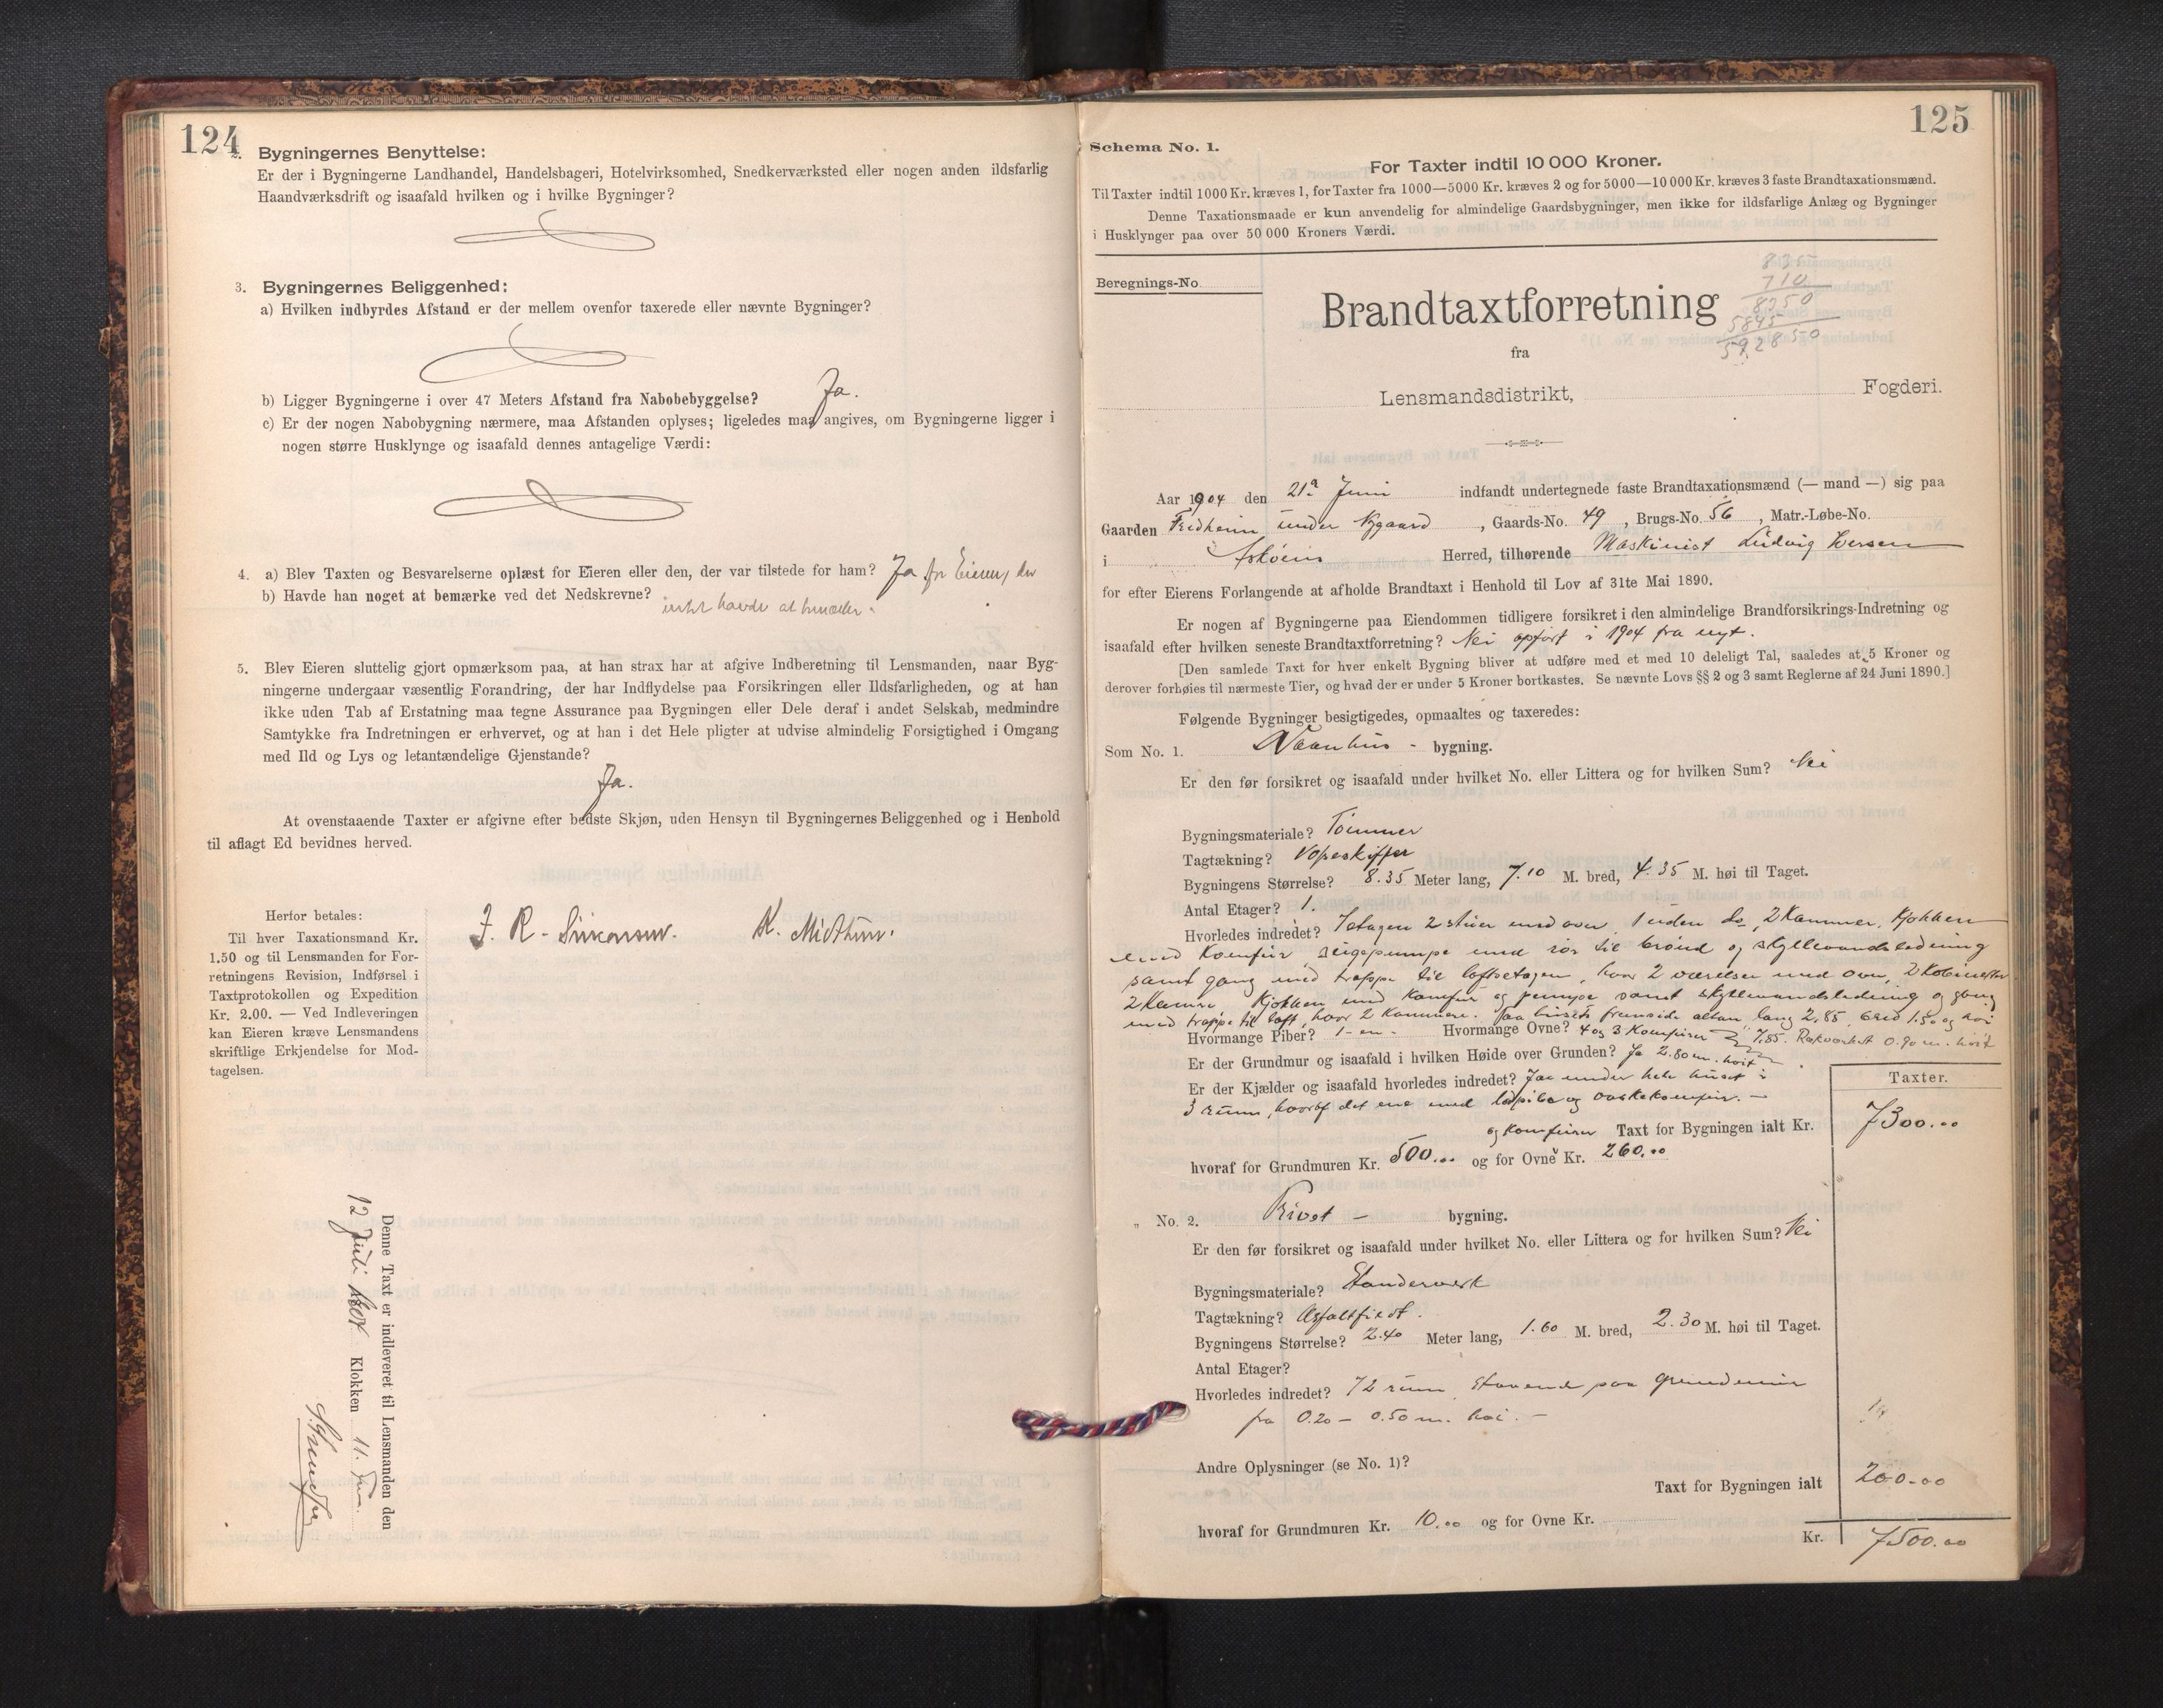 124
2. Bygningernes Benyttelse:
Er der i Bygningerne Landhandel, Handelsbageri, Hotelvirksomhed, Snedkerværksted eller nogen anden ildsfarlig
Haandværksdrift og isaafald hvilken og i hvilke Bygninger?
3. Bygningernes Beliggenhed:
a) Hvilken indbyrdes Afstand er der mellem ovenfor taxerede eller nævnte Bygninger?
b) Ligger Bygningerne i over 47 Meters Afstand fra Nabobebyggelse? Ja.
c) Er der nogen Nabobygning nærmere, maa Afstanden oplyses; ligeledes maa angives, om Bygningerne ligger i
nogen større Husklynge og isaafald dennes antagelige Værdi:
4. a) Blev Taxten og Besvarelserne oplæst for Eieren eller den, der var tilstede for ham? Ja for Eieren, der
b) Havde han noget at bemærke ved det Nedskrevne? intet havde at bemærke.
5. Blev Eieren sluttelig gjort opmærksom paa, at han strax har at afgive Indberetning til Lensmanden, naar Byg-
ningerne undergaar væsentlig Forandring, der har Indflydelse paa Forsikringen eller Ildsfarligheden, og at han
ikke uden Tab af Erstatning maa tegne Assurance paa Bygningen eller Dele deraf i andet Selskab, medmindre
Samtykke fra Indretningen er erhvervet, og at han i det Hele pligter at udvise almindelig Forsigtighed i Omgang
med Ild og Lys og letantændelige Gjenstande?
Ja.
At ovenstaaende Taxter er afgivne efter bedste Skjøn, uden Hensyn til Bygningernes Beliggenhed og i Henhold
til aflagt Ed bevidnes herved.
Herfor betales:
Til hver Taxationsmand Kr.
1.50 og til Lensmanden for For-
retningens Revision, Indførsel i
Taxtprotokollen og Expedition
Kr. 2.00. — Ved Indleveringen
kan Eieren kræve Lensmandens
skriftlige Erkjendelse for Mod-
tagelsen.
J. R. K. Midthun.
Denne Taxt er indleveret til Lensmanden den
12 Juli 1904 Klokken 11. Fm.
125
Schema No. 1.
For Taxter indtil 10 000 Kroner.
Til Taxter indtil 1000 Kr. kræves 1, for Taxter fra 1000—5000 Kr. kræves 2 og for 5000—10 000 Kr. kræves 3 faste Brandtaxationsmænd.
Denne Taxationsmaade er kun anvendelig for almindelige Gaardsbygninger, men ikke for ildsfarlige Anlæg og Bygninger
i Husklynger paa over 50 000 Kroners Værdi.
Beregnings-No.
835
710
8350
5845
592850
Brandtaxtforretning
fra
Lensmandsdistrikt, Fogderi.
Aar 1904 den 21de Juni indfandt undertegnede faste Brandtaxationsmænd (— mand —) sig paa
Gaarden Fredheim under Nygaard, Gaards-No. 49, Brugs-No. 56, Matr.-Løbe-No.
i Askøens Herred, tilhørende Maskinist Ludvig Iversen
for efter Eierens Forlangende at afholde Brandtaxt i Henhold til Lov af 31te Mai 1890.
Er nogen af Bygningerne paa Eiendommen tidligere forsikret i den almindelige Brandforsikrings-Indretning og
isaafald efter hvilken seneste Brandtaxtforretning? Nei opført i 1904 fra nyt.
[Den samlede Taxt for hver enkelt Bygning bliver at udføre med et med 10 deleligt Tal, saaledes at 5 Kroner og
derover forhøies til nærmeste Tier, og hvad der er under 5 Kroner bortkastes. Se nævnte Lovs §§ 2 og 3 samt Reglerne af 24 Juni 1890.]
Følgende Bygninger besigtigedes, opmaaltes og taxeredes:
Som No. 1. Vaanhus - bygning.
Er den før forsikret og isaafald under hvilket No. eller Littera og for hvilken Sum? Nei
Bygningsmateriale? Tømmer
Tagtækning? Vosseskiffer
Bygningens Størrelse? 8.35 Meter lang, 7.10 M. bred, 4.35 M. høi til Taget.
Antal Etager? 1.
Hvorledes indredet? 1 etagen 2 stuer med ovn, 1 uden do, 2 Kammer, Kjøkken
med Komfur, sugepumpe med rør til brønd og skyllevandsledning
samt gang med trappe til loftsetagen, hvor 2 værelser med ovn, 2 Kabinetter
2 Kamre, Kjøkken med Komfur og pumpe samt skyllevandsledning og gang
med trappe til loft, hvor 2 Kammere. Paa husets fremside altan lang 2.85, bred 1.50 og høi
Hvormange Piber? 1 - en - Hvormange Ovne? 4 og 3 Komfurer 7.85. Rækværket 0.90 m. høit
Er der Grundmur og isaafald i hvilken Høide over Grunden? Ja 2.80 m. høit
Er der Kjælder og isaafald hvorledes indredet? Jaa under hele huset i
3 rum, hvoraf det ene med løspibe og vaskekomfur. —
Taxter.
og Komfurer Taxt for Bygningen ialt Kr. 7300.00
hvoraf for Grundmuren Kr. 500.00 og for Ovne Kr. 260.00
„ No. 2. Privet - bygning.
Er den før forsikret og isaafald under hvilket No. eller Littera og for hvilken Sum? Nei
Bygningsmateriale? Standerverk
Tagtækning? Asfaltfildt.
Bygningens Størrelse? 2.40 Meter lang, 1.60 M. bred, 2.30 M. høi til Taget.
Antal Etager?
Hvorledes indredet? I 2 rum, staaende paa grundmur
fra 0.20 — 0.50 m. høi. —
Andre Oplysninger (se No. 1)?
Taxt for Bygningen ialt 200.00
hvoraf for Grundmuren Kr. 10.00 og for Ovne Kr.
Kr. 7500.00